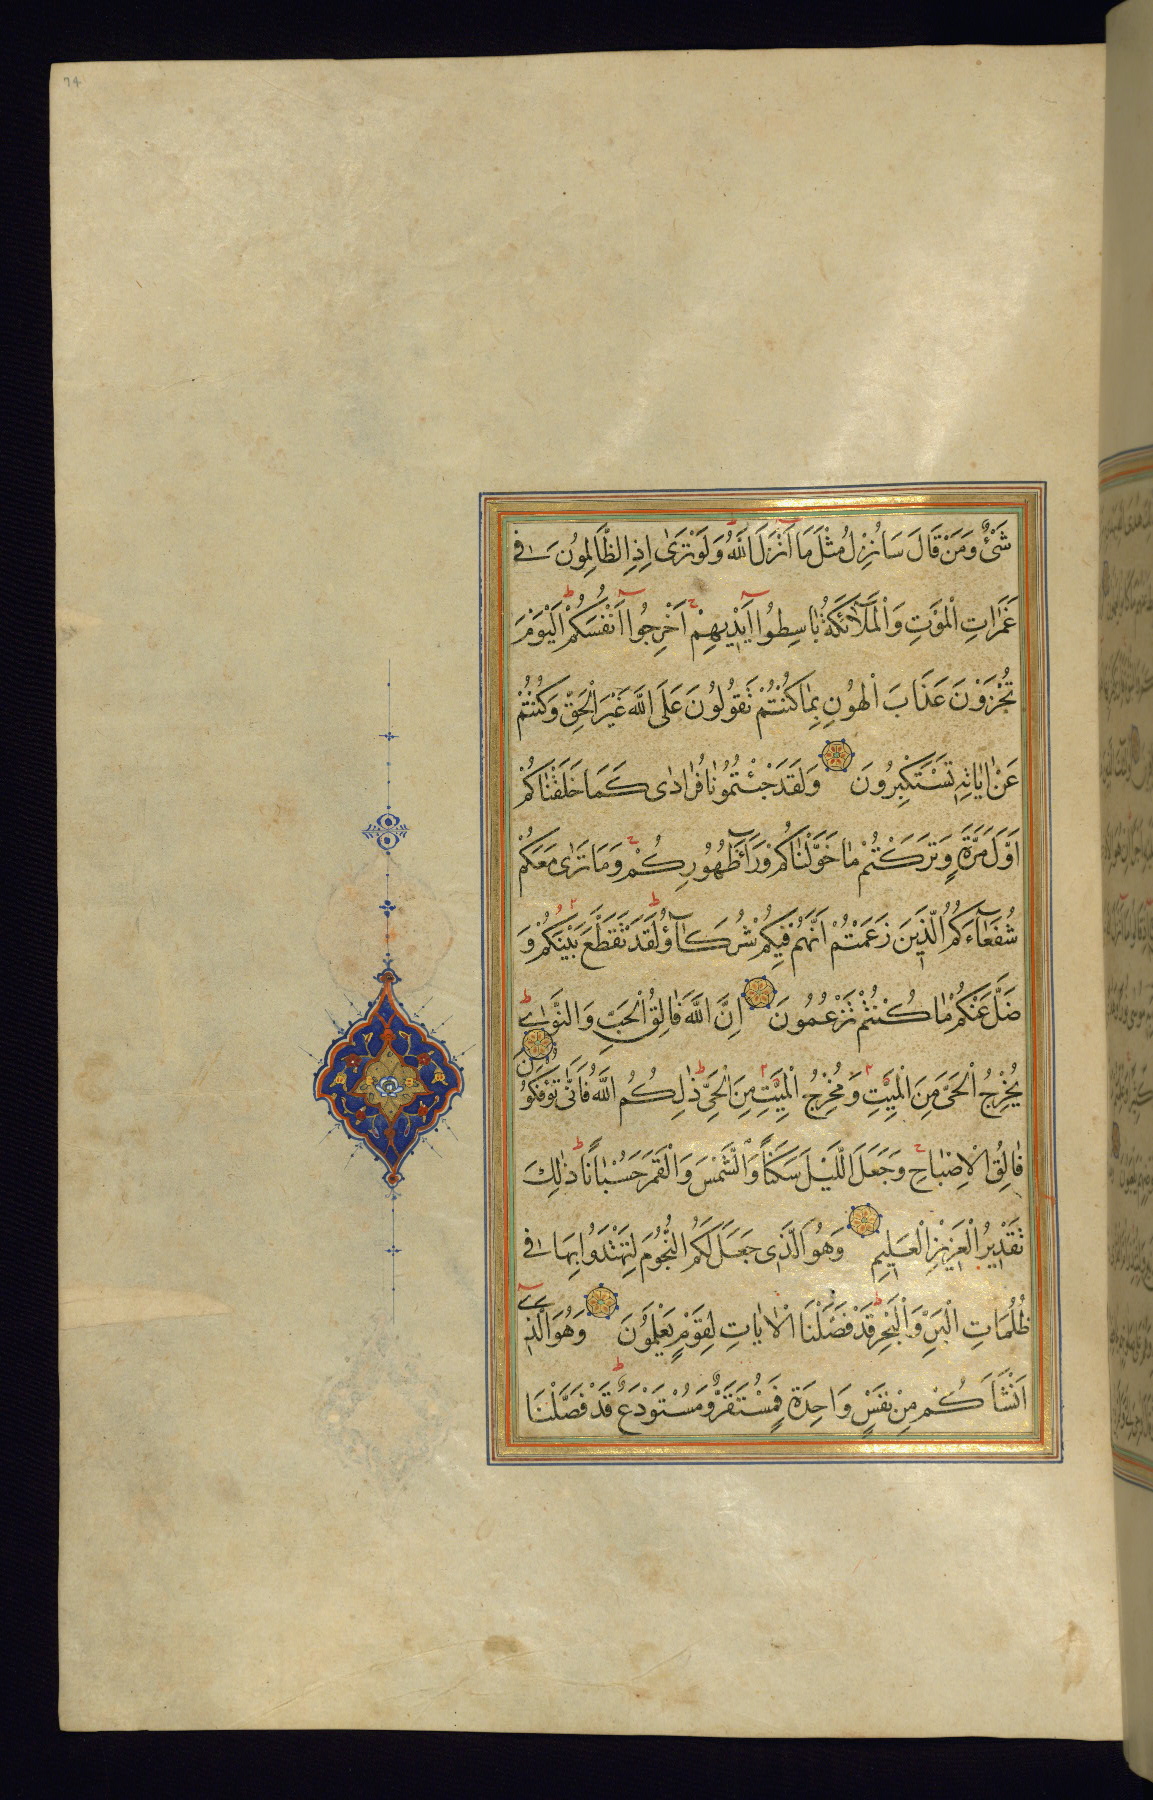 74
شَىْءٌ وَمَنْ قَالَ سَاُنْزِلُ مِثْلَ مَا اَنْزَلَ اللّٰهُ وَلَوْ تَرٰى اِذِ الظَّالِمُونَ فى
غَمَرَاتِ الْمَوْتِ وَالْمَلٰٓئِكَةُ بَاسِطُوا اَيْدِيهِمْ اَخْرِجُوا اَنْفُسَكُمْ اَلْيَوْمَ
تُجْزَوْنَ عَذَابَ الْهُونِ بِمَا كُنْتُمْ تَقُولُونَ عَلَى اللّٰهِ غَيْرَ الْحَقِّ وَكُنْتُمْ
عَنْ اٰيَاتِهِ تَسْتَكْبِرُونَ وَلَقَدْ جِئْتُمُونَا فُرَادٰى كَمَا خَلَقْنَاكُمْ
اَوَّلَ مَرَّةٍ وَتَرَكْتُمْ مَا خَوَّلْنَاكُمْ وَرَآءَ ظُهُورِكُمْ وَمَا نَرٰى مَعَكُمْ
شُفَعَآءَكُمُ الَّذِينَ زَعَمْتُمْ اَنَّهُمْ فِيكُمْ شُرَكَآؤُ لَقَدْ تَقَطَّعَ بَيْنَكُمْ وَ
ضَلَّ عَنْكُمْ مَا كُنْتُمْ تَزْعُمُونَ اِنَّ اللّٰهَ فَالِقُ الْحَبِّ وَالنَّوٰى
يُخْرِجُ الْحَىَّ مِنَ الْمَيِّتِ وَمُخْرِجُ الْمَيِّتِ مِنَ الْحَىِّ ذٰلِكُمُ اللّٰهُ فَاَنّٰى تُؤْفَكُونَ
فَالِقُ الْاِصْبَاحِ وَجَعَلَ اللَّيْلَ سَكَنًا وَالشَّمْسَ وَالْقَمَرَ حُسْبَانًا ذٰلِكَ
تَقْدِيرُ الْعَزِيزِ الْعَلِيمِ وَهُوَ الَّذِى جَعَلَ لَكُمُ النُّجُومَ لِتَهْتَدُوا بِهَا فى
ظُلُمَاتِ الْبَرِّ وَالْبَحْرِ قَدْ فَصَّلْنَا الْاٰيَاتِ لِقَوْمٍ يَعْلَمُونَ وَهُوَ الَّذِى
اَنْشَاَكُمْ مِنْ نَفْسٍ وَاحِدَةٍ فَمُسْتَقَرٌّ وَمُسْتَوْدَعٌ قَدْ فَصَّلْنَا